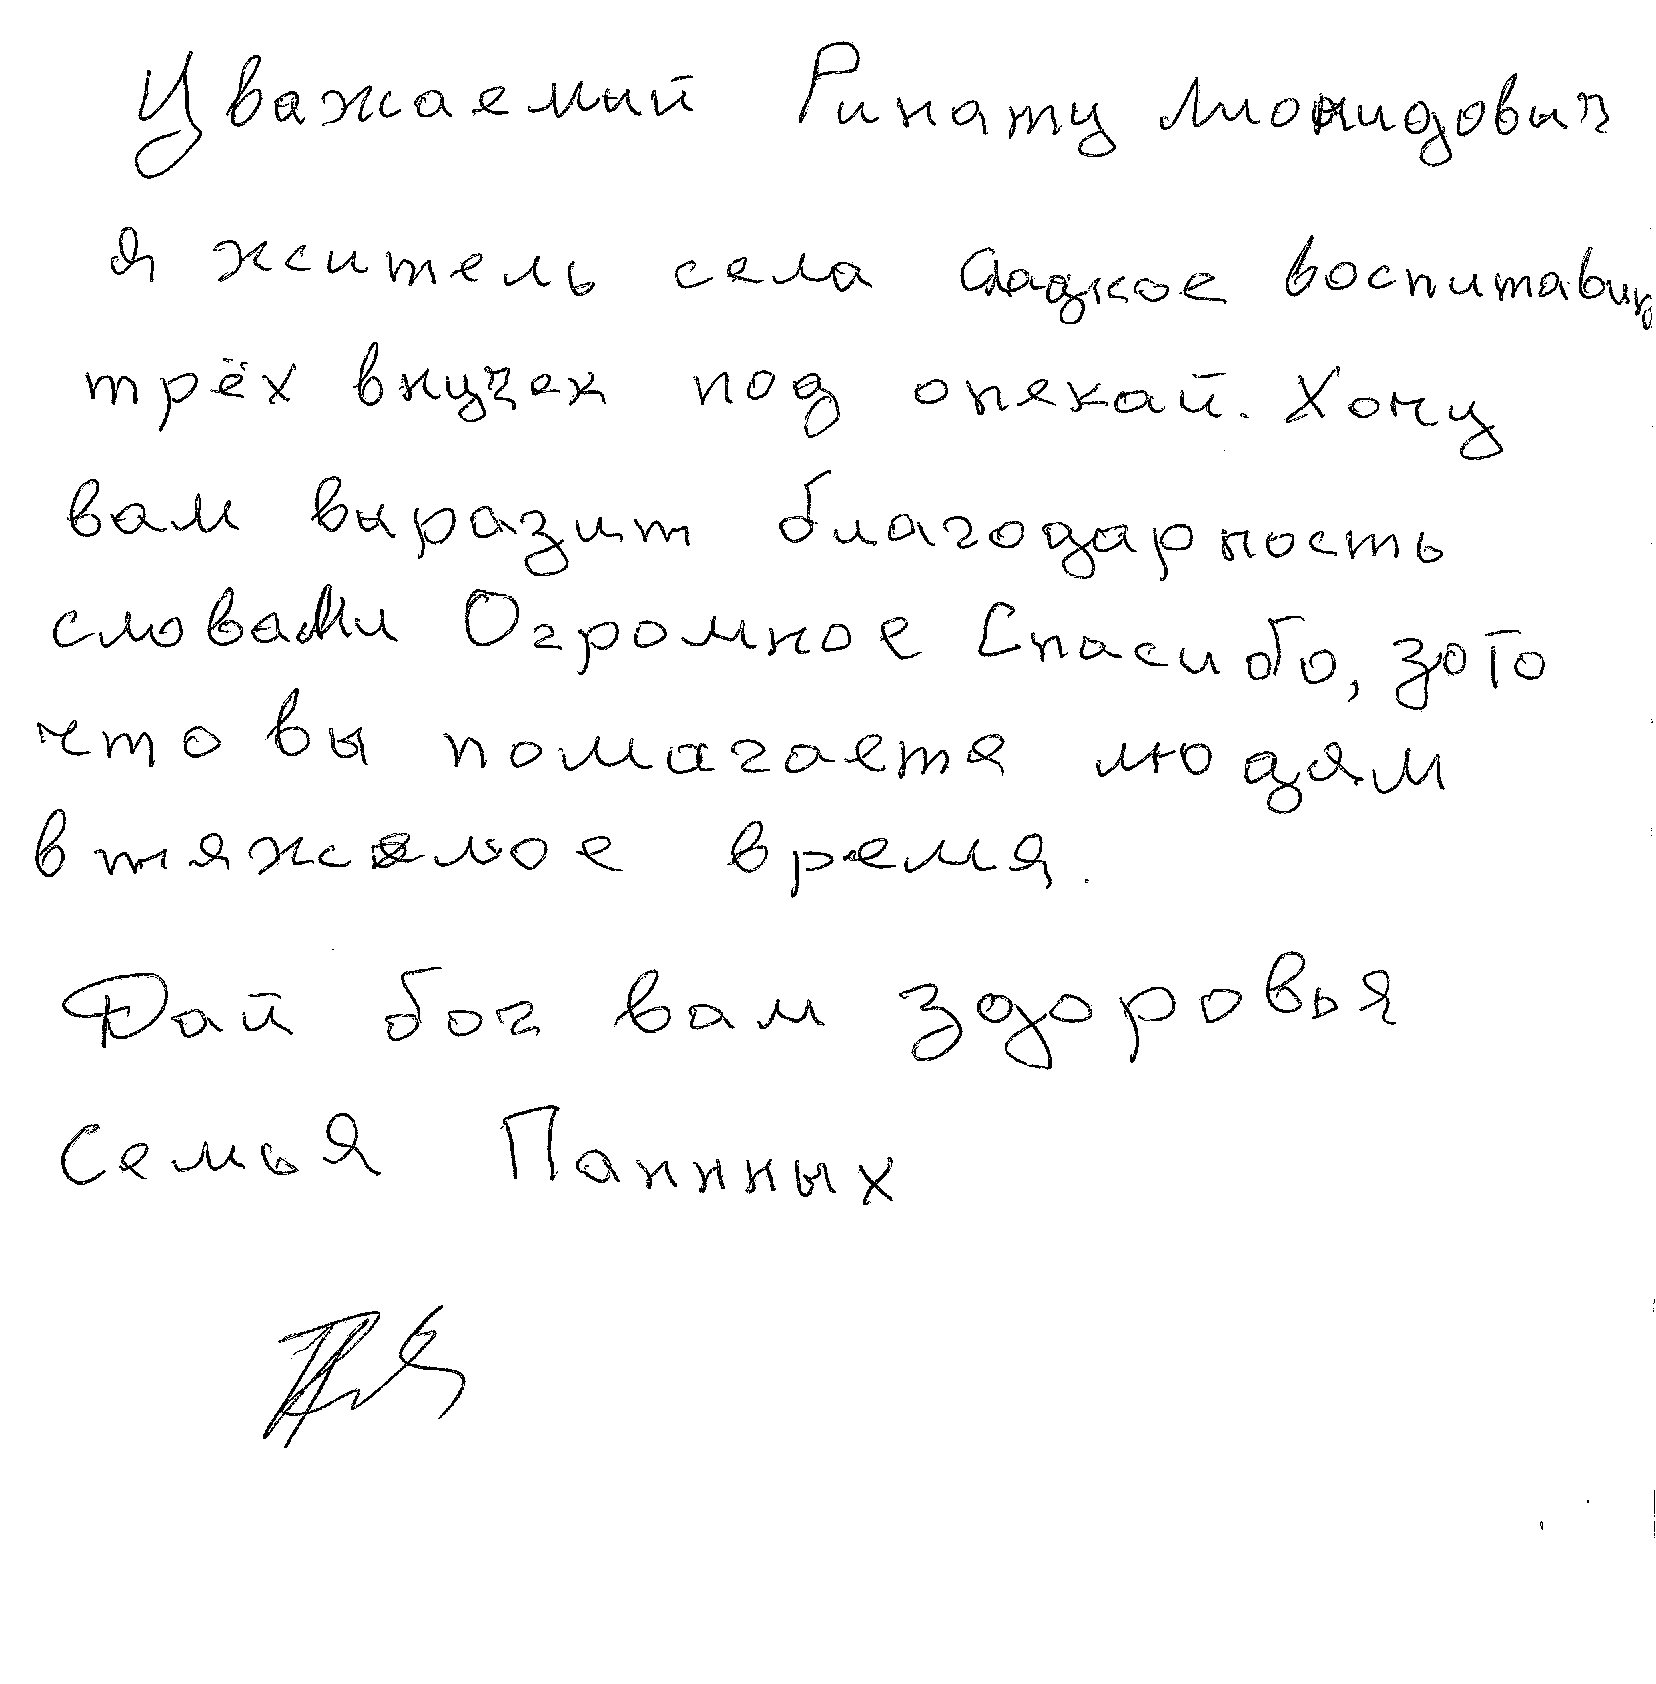 Уважаемий Ринату Лионидович
я житель села Сладкое воспитавиц
трёх внучек под опекай. Хочу
вам выразит благодарность
словами Огромное Спасибо, зато
что вы помагаетя людям
в тяжелое время.
Дай бог вам здоровья
Семья Паннных